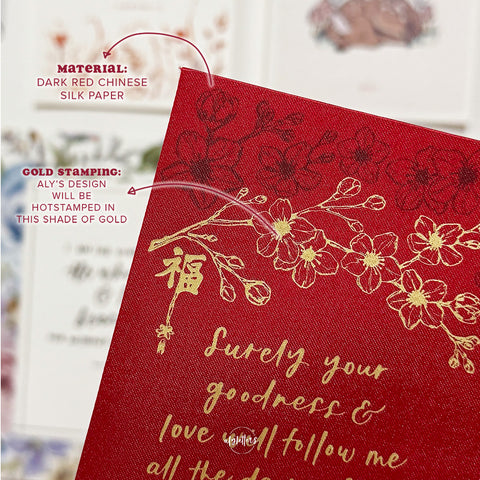 MATERIAL:
DARK RED CHINESE
SILK PAPER
GOLD STAMPING:
ALY'S DESIGN
WILL BE
HOTSTAMPED IN
THIS SHADE OF GOLD
福
Surely your
goodness &
love will follow me
all the